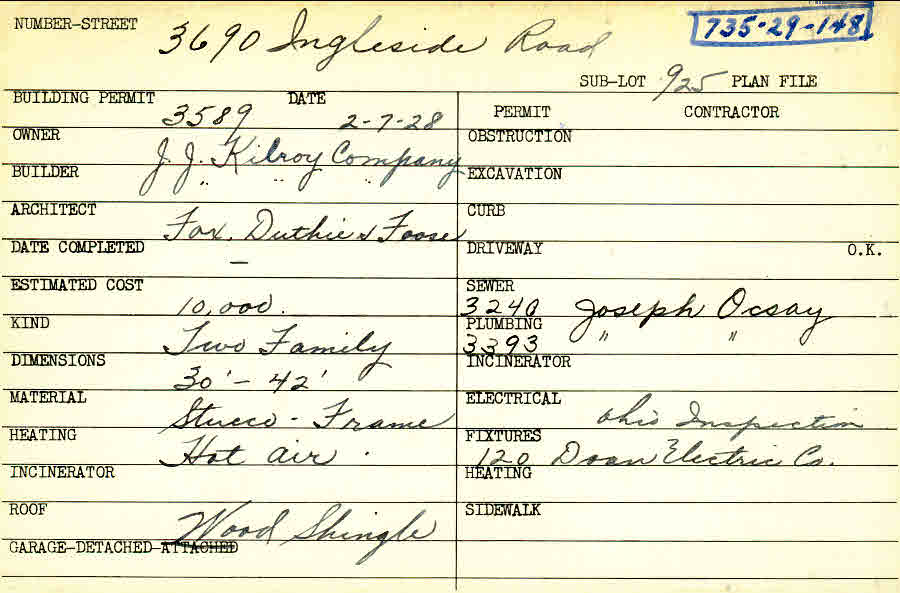 NUMBER-STREET 3690 Ingleside Road 735-29-148
SUB-LOT 925 PLAN FILE
BUILDING PERMIT 3589 DATE 2-7-28
OWNER J. J. Kilroy Company
BUILDER " " "
ARCHITECT Fox, Duthie & Foose
DATE COMPLETED —
ESTIMATED COST 10,000.
KIND Two Family
DIMENSIONS 30' - 42'
MATERIAL Stucco - Frame
HEATING Hot air .
INCINERATOR
ROOF Wood Shingle
GARAGE-DETACHED-ATTACHED
PERMIT CONTRACTOR
OBSTRUCTION
EXCAVATION
CURB
DRIVEWAY O.K.
SEWER
3240 Joseph Ocsay
PLUMBING
3393 " "
INCINERATOR
ELECTRICAL Ohio Inspection
FIXTURES
120 Doan Electric Co.
HEATING
SIDEWALK